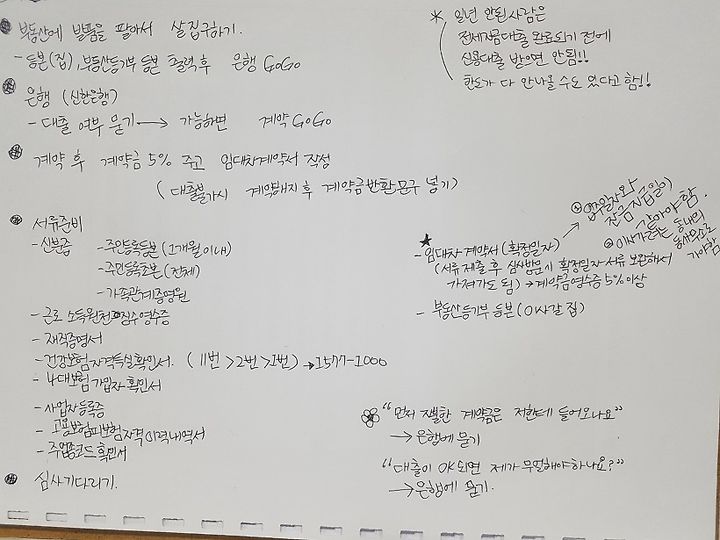 부동산에 발품을 팔아서 살집구하기.
- 등본(집), 부동산등기부 등본 출력 후 은행 GoGo
은행 (신한은행)
- 대출 여부 묻기 → 가능하면 계약 GoGo
계약 후 계약금 5% 주고 임대차계약서 작성
(대출불가시 계약해지 후 계약금반환문구 넣기)
서류준비
- 신분증
- 주민등록등본 (1개월이내)
- 주민등록초본 (전체)
- 가족관계증명원
- 근로소득원천징수영수증
- 재직증명서
- 건강보험자격득실확인서. (11번 > 2번 > 1번) → 1577-1000
- 4대보험 가입자 확인서
- 사업자등록증
- 고용보험피보험자격이력내역서
- 주업종코드확인서
심사기다리기.
* 일년 안된사람은
전세자금대출 완료되기 전에
신용대출 받으면 안됨!!
한도가 다 안나올 수도 있다고 함!!
★
- 임대차계약서 (확정일자)
(서류 제출 후 심사방문시 확정일자 서류 보완해서
가져가도 됨) → 계약금영수증 5%이상
① 입주일자와
잔금지급일이
같아야 함.
② 이사가려는 동네의
동사무소로
가야함
- 부동산등기부 등본 (이사갈 집)
"먼저 지불한 계약금은 저한테 들어오나요"
→ 은행에 묻기
"대출이 OK되면 제가 무얼해야하나요?"
→ 은행에 묻기.